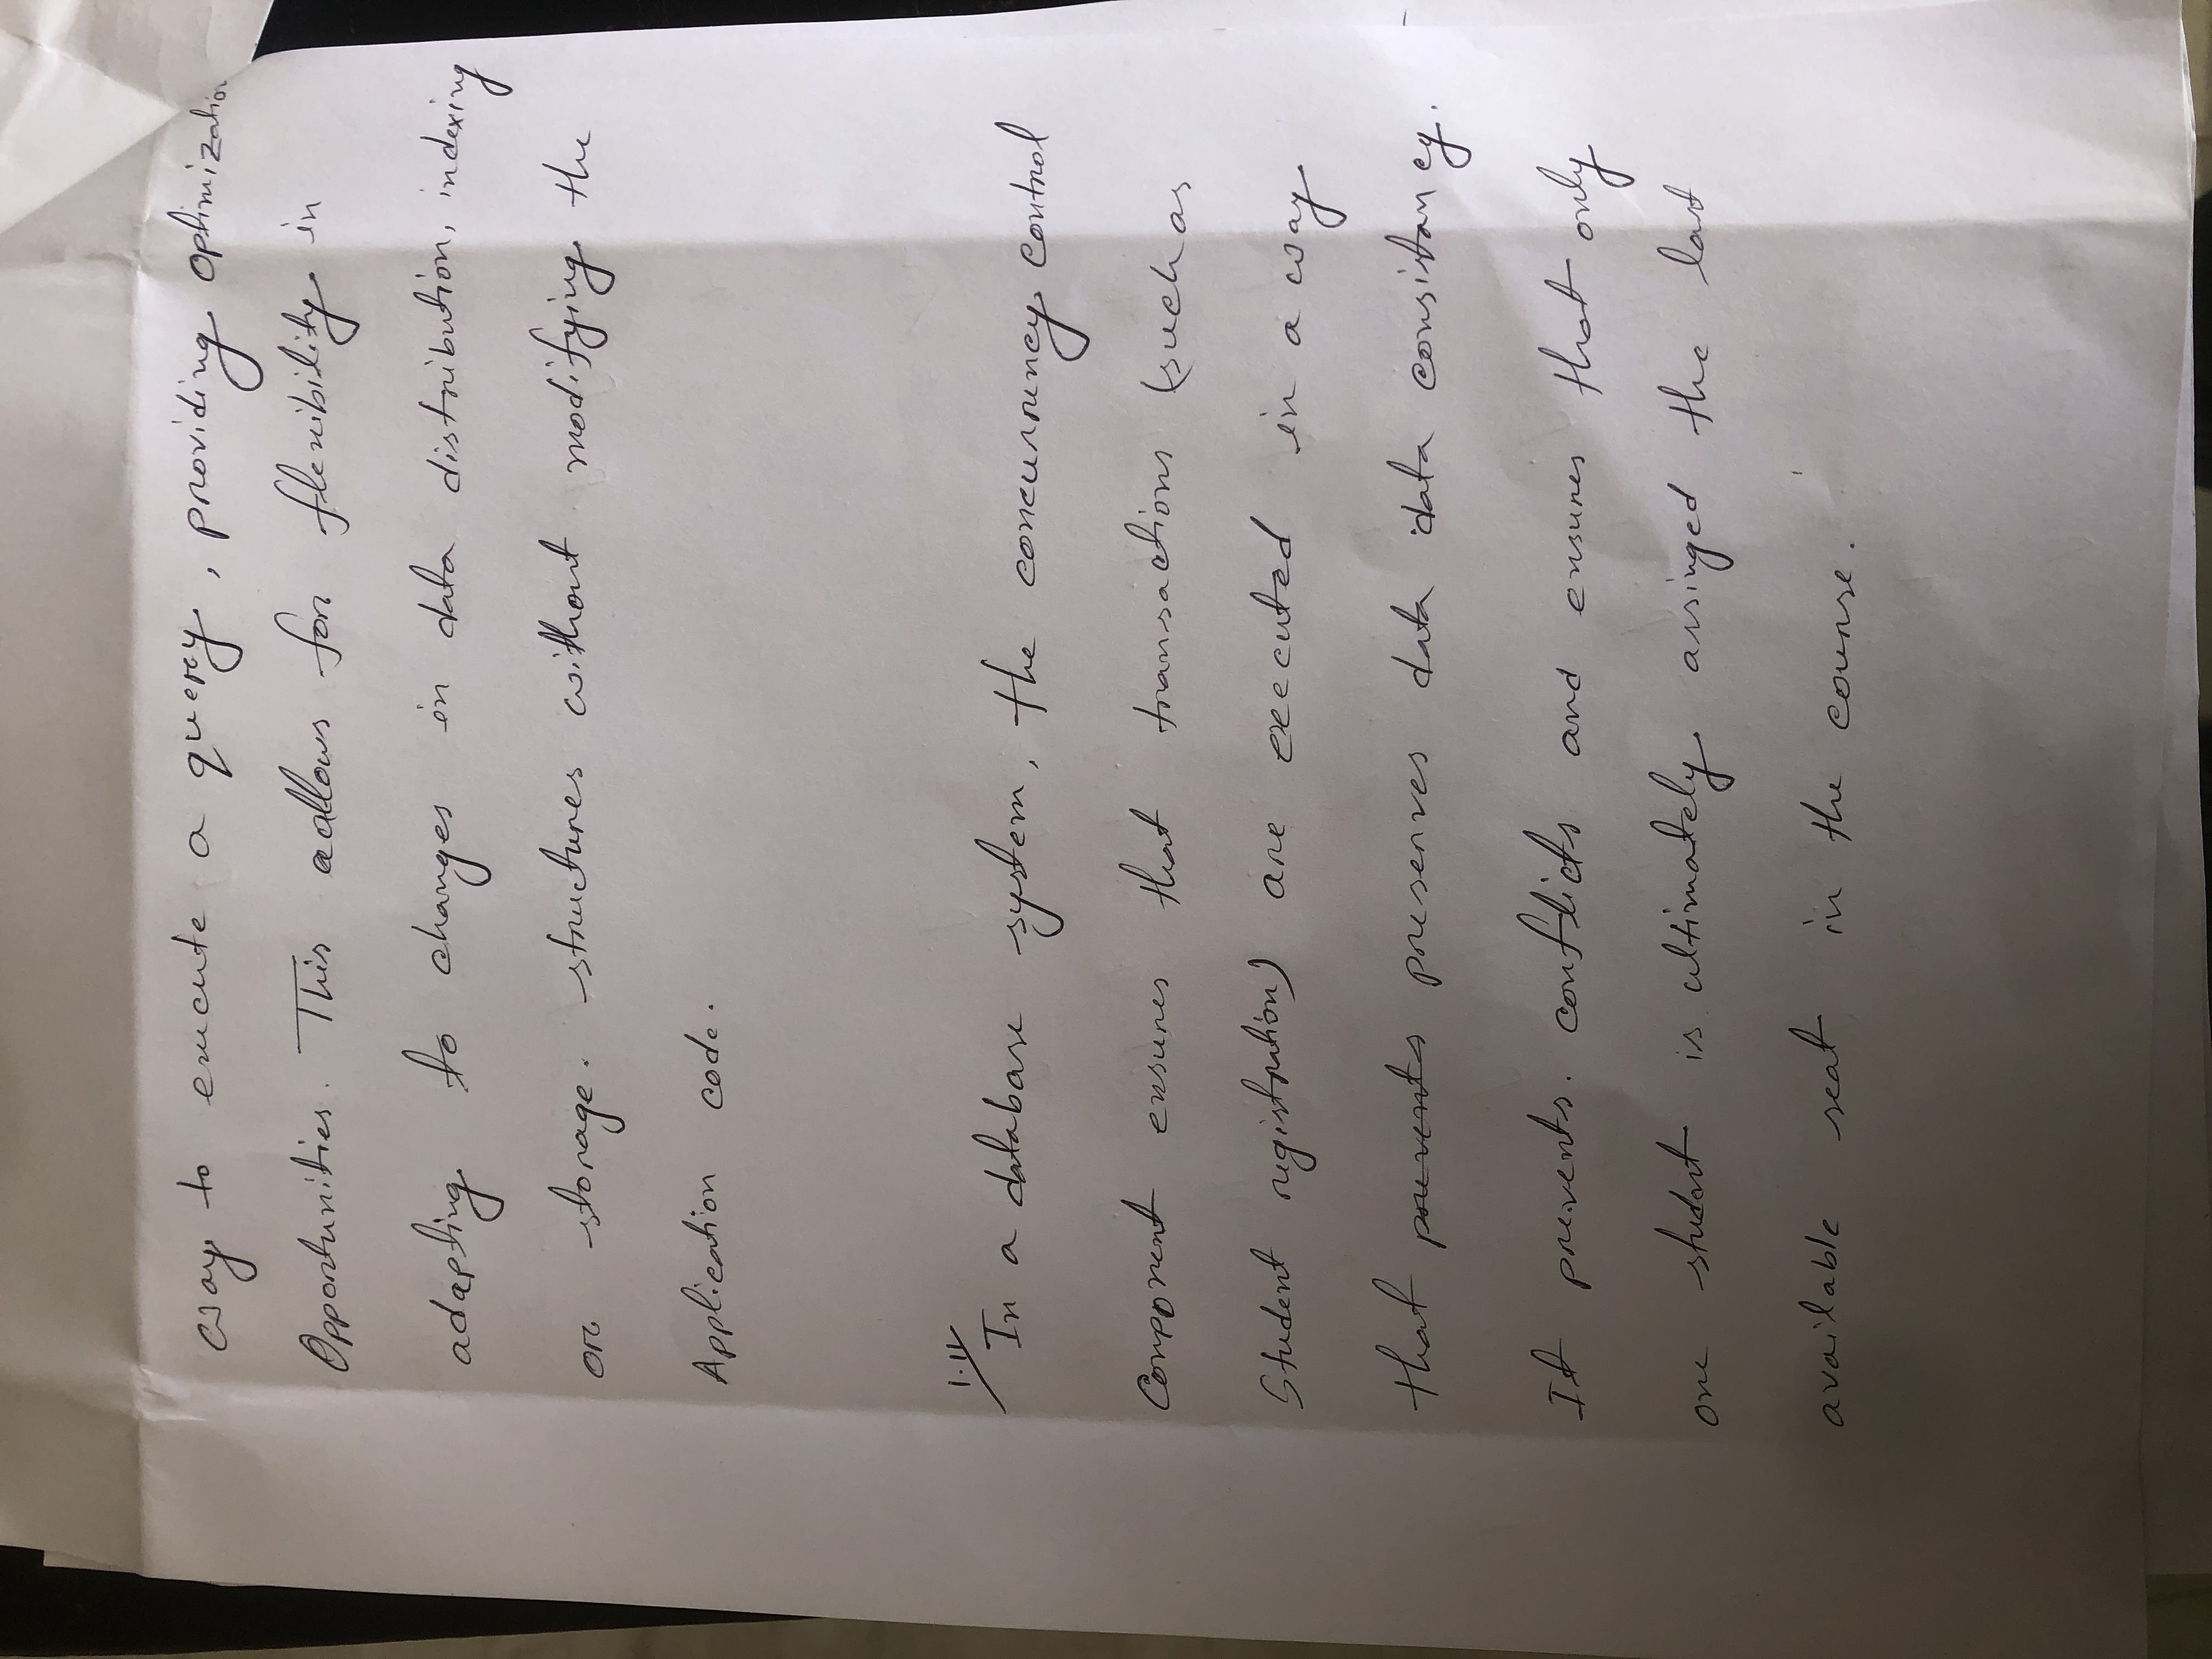 way to execute a query, providing Optimization
Opportunities. This aallows for flexibility in
adapting to changes in data distribution, indexing
or storage. structures without modifying the
Application code.
1.11
In a database system, the concurrency control
Component ensures that transactions (such as
Student registration) are executed in a way
that prevents preserves data data consistancy.
It prevents. conflicts and ensures that only
one student is ultimately assinged the last
available seat in the course.